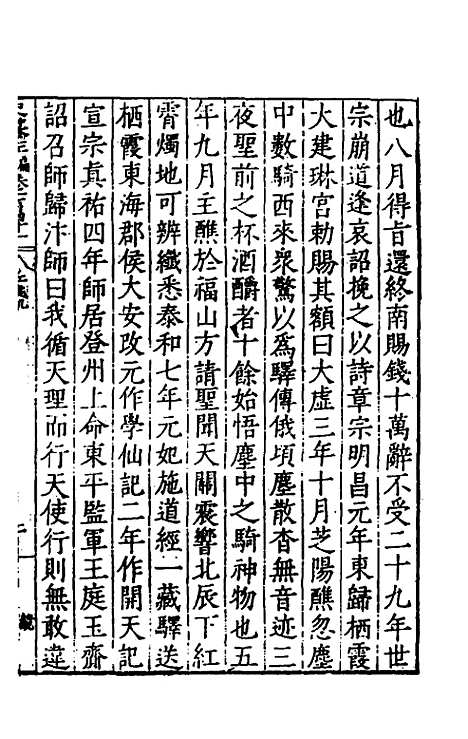 也八月得旨還終南賜錢十萬辭不受二十九年世
宗崩道逢哀詔挽之以詩章宗明昌元年東歸栖霞
大建琳宮勅賜其額曰大虛三年十月芝陽醮忽塵
中數騎西來衆驚以爲驛傳俄頃塵散杳無音迹三
夜聖前之杯酒酹者十餘始悟塵中之騎神物也五
年九月主醮於福山方請聖聞天關震響北辰下紅
霄燭地可辨纖悉泰和七年元妃施道經一藏驛送
栖霞東海郡侯大安改元作學仙記二年作開天記
宣宗眞祐四年師居登州上命東平監軍王庭玉齎
詔召師歸汴師曰我循天理而行天使行則無敢違